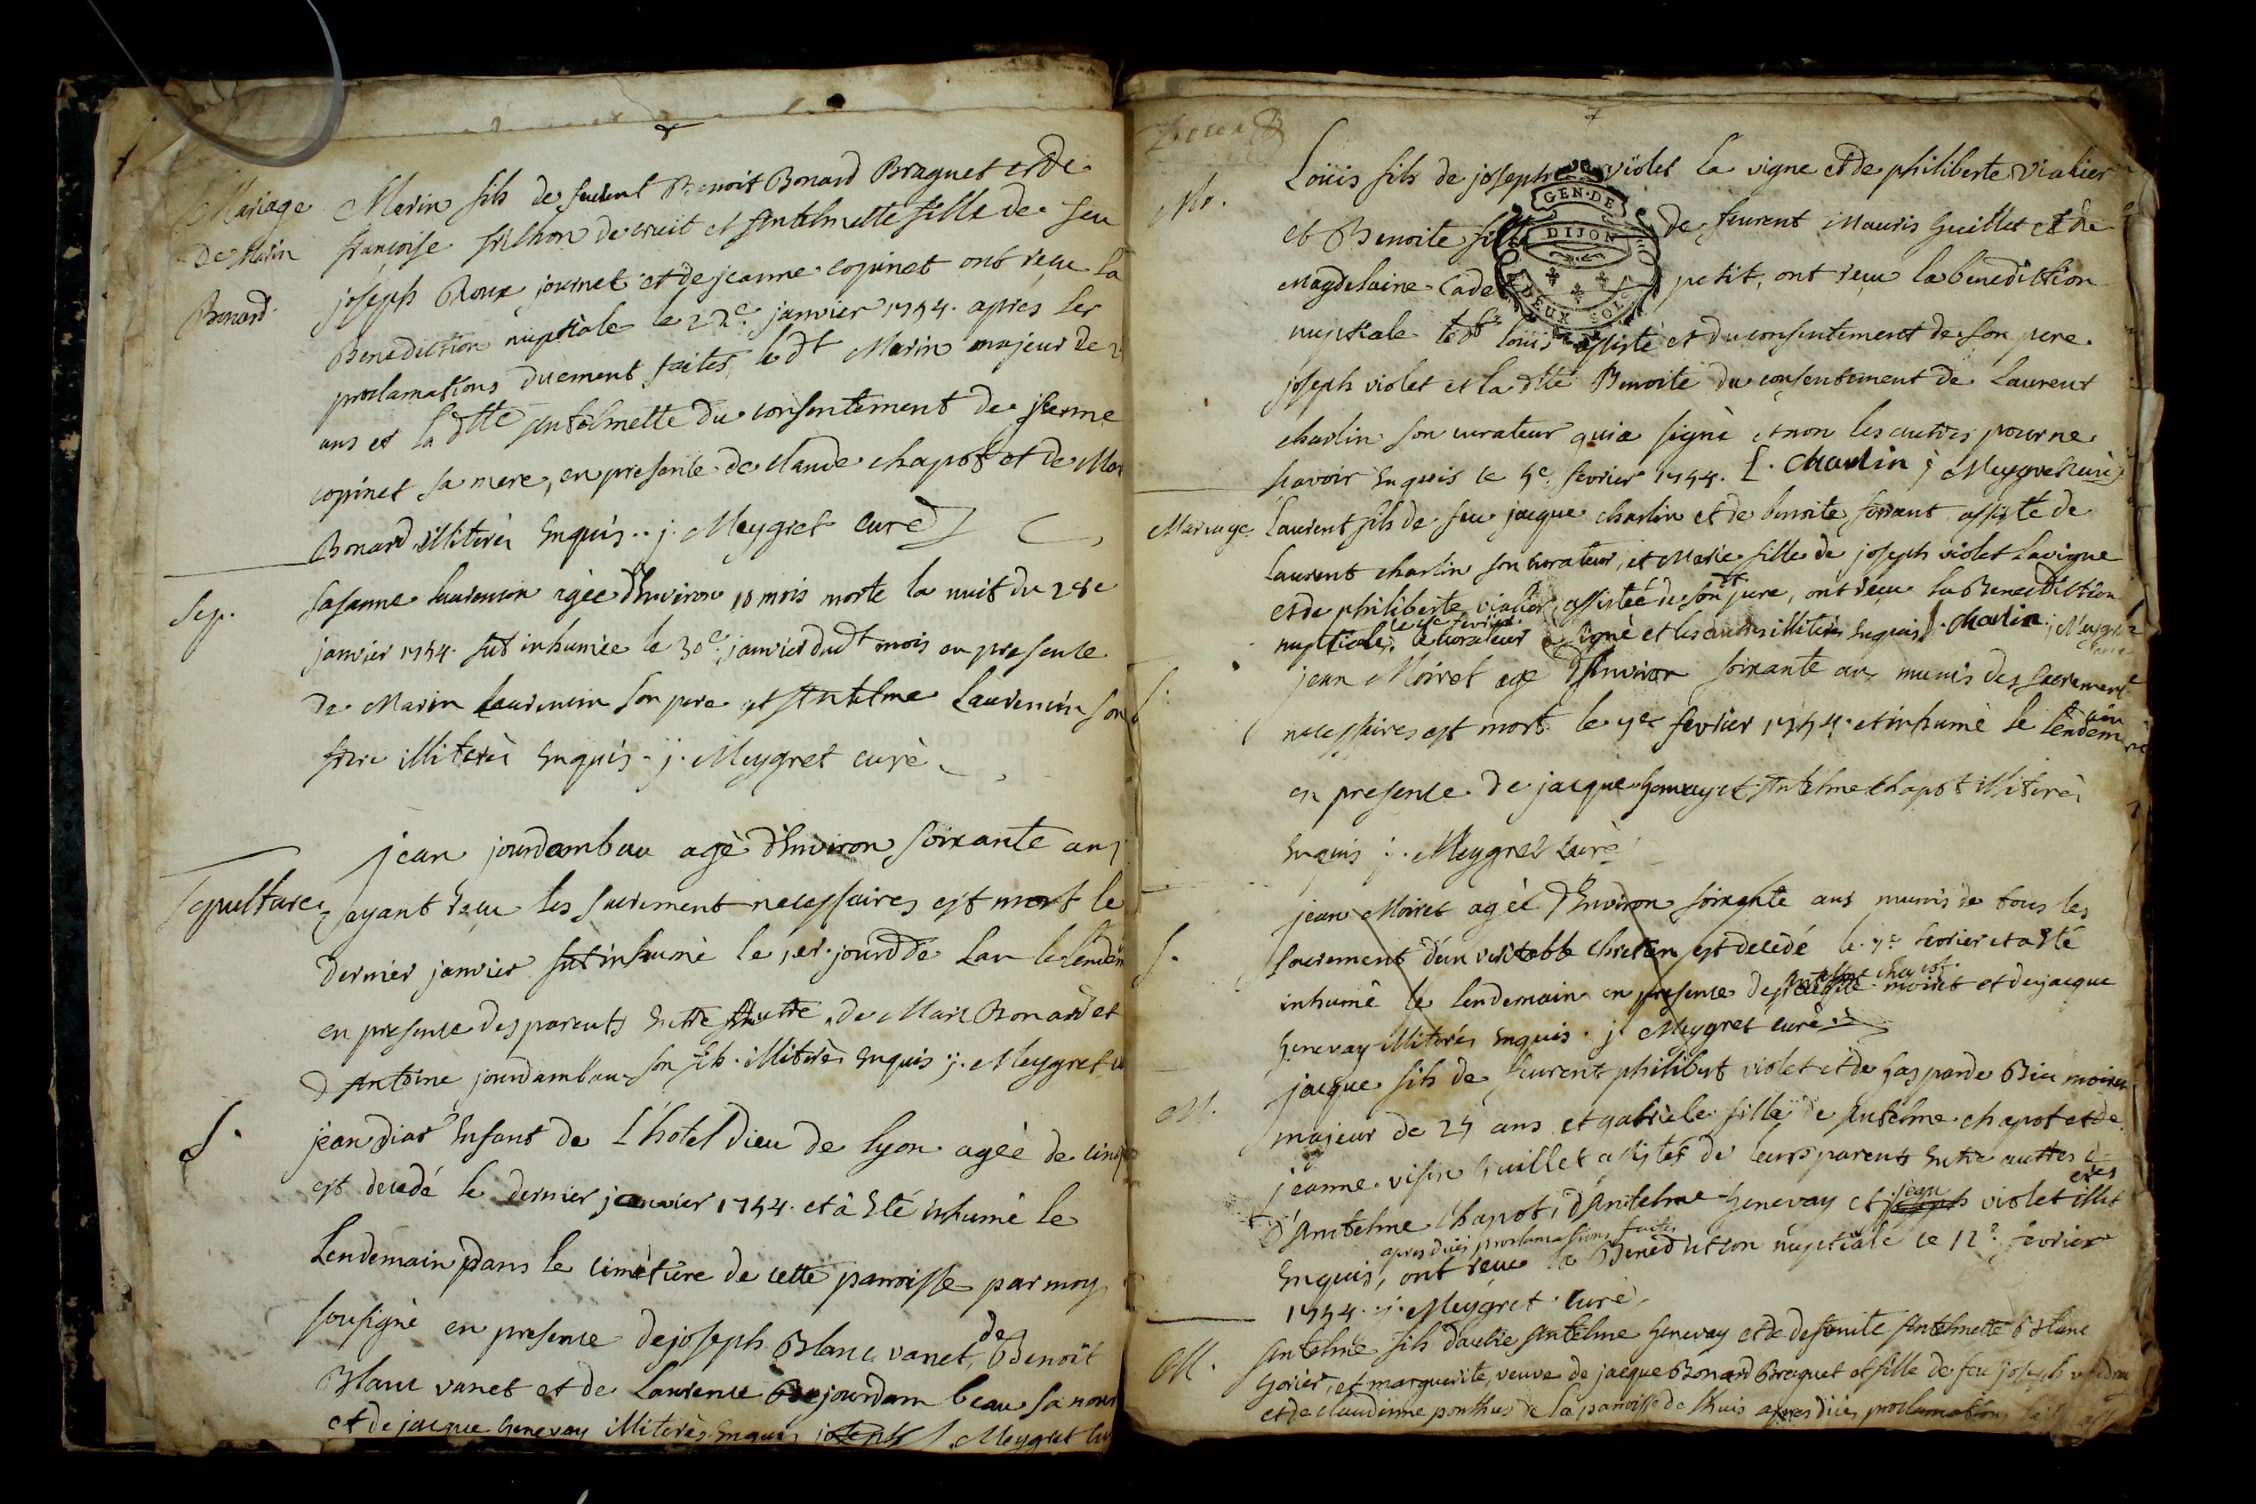 Mariage
De Marin
Bonard
Marin fils de Laurent Benoit Bonard Braguet et de
françoise frilhon decruit et Antelmette fille de feu
joseph Roux journet et de jeanne copinet ont reçu la
Benediction nuptiale le 22e janvier 1754. apres les
proclamations duement faites, le dt Marin majeur de
ans et la dtte Antelmette du consentement de jeanne
copinet sa mere, en presence de claude chapot et de
Bonard illiterés Enquis. j. Meygret curé
Sep.
Susanne Laurencin agée d'Environ 18 mois morte la nuit du 28e
janvier 1754. fut inhumée le 30e janvier dudt mois en presence
de Marin Laurencin son pere et Antelme Laurencin son
frere illiterés Enquis. j. Meygret curé
Sepulture
jean jourdambeau agé d'Environ soixante ans
ayant reçu les sacrement necessaires est mort le
dernier janvier fut inhumé le 1er jourd de Lan le lendem
en presence des parents Entre autre de Marc Bonard et
d'Antoine jourdambau son fils illiterés Enquis j. Meygret
S.
jean diar Enfant de L'hotel Dieu de lyon agée de cinq
est decedé le dernier janvier 1754. et â Eté inhumé le
Lendemain dans le cimetiere de cette parroisse par moy
sousigné en presence de joseph Blanc vanet, de Benoit
Blanc vanet et de Laurence jourdam beau sa nour
et de jacque Genevay illiterés Enquis J. Meygret
M.
Loüis fils de joseph violet la vigne et de philiberte vialier
et Benoite fille de Laurent Mauris Guillet et de
Magdelaine Cadet petit, ont reçu la benediction
nuptiale le dt loüis assisté et du consentement de son pere
joseph violet et la dtte Benoite du consentement de Laurent
charlin son curateur qui a signé et non les autres pour ne
scavoir Enquis le 5e fevrier 1754. L. charlin j Meygret curé
Mariage
Laurent fils de feu jacque charlin et de benoite forrant assisté de
Laurent charlin son curateur, et Marie fille de joseph violet Lavigne
et de philiberte vialier, assistée de son pere, ont reçu la Benediction
le 5e fevrier
nuptiale, le curateur a signé et les autres illiterés Enquis L. charlin j Meygret
curé
S.
jean Moiret agé d'Environ soixante ans munis des sacrement
necessaires est mort le 7e fevrier 1754. et inhumé le lendemain
en presence de jacque Genevay et Antelme chapot illiterés
Enquis j. Meygret curé
S.
jean Moiret agée d'Environ soixante ans munis de tous les
sacrement d'un veritable chretien est decedé le 7e fevrier et a Eté
inhumé le lendemain en presence de moiret et de jacque
Genevay illiterés Enquis. j. Meygret curé
M.
jacque fils de Laurent philibert violet et de Gasparde Bic moiret
majeur de 25 ans et gabriele fille de Antelme chapot et de
jeanne visin Guillet assistés de leurs parents Entre autres
d'Antelme Chapot, d'Antelme Genevay et jean violet illit
erés
apres dües proclamations faites
Enquis, ont reçu la Benediction nuptiale le 12e fevrier
1754. j. Meygret curé
M.
Antelme fils d'autre Antelme Genevay et de defunte Antelmette Blanc
Gorier, et marguerite, veuve de jacque Bonard Braguet et fille de feu joseph
et de claudinne ponthus de la parroisse de Rhuis apres dües proclamations